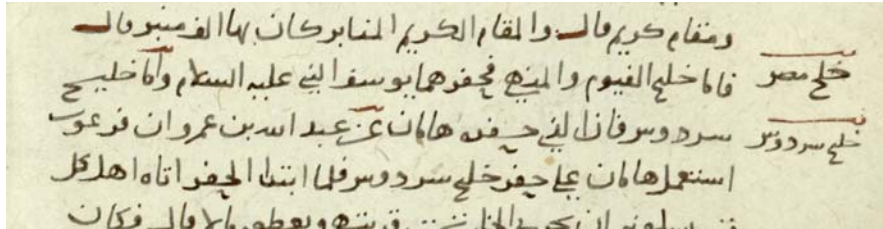 ومقام كريم قال والمقام الكريم المنابر كان بها الف منبر قال
خلج مصر
فاما خليج الفيوم والمنهى فحفرهما يوسف النبي عليه السلام واما خليج
خلج سردوس
سردوس فان الذي حفره هامان عن عبد الله بن عمرو ان فرعون
استعمل هامان على حفر خلج سردوس فلما ابتدا الحفر اتاه اهل كل